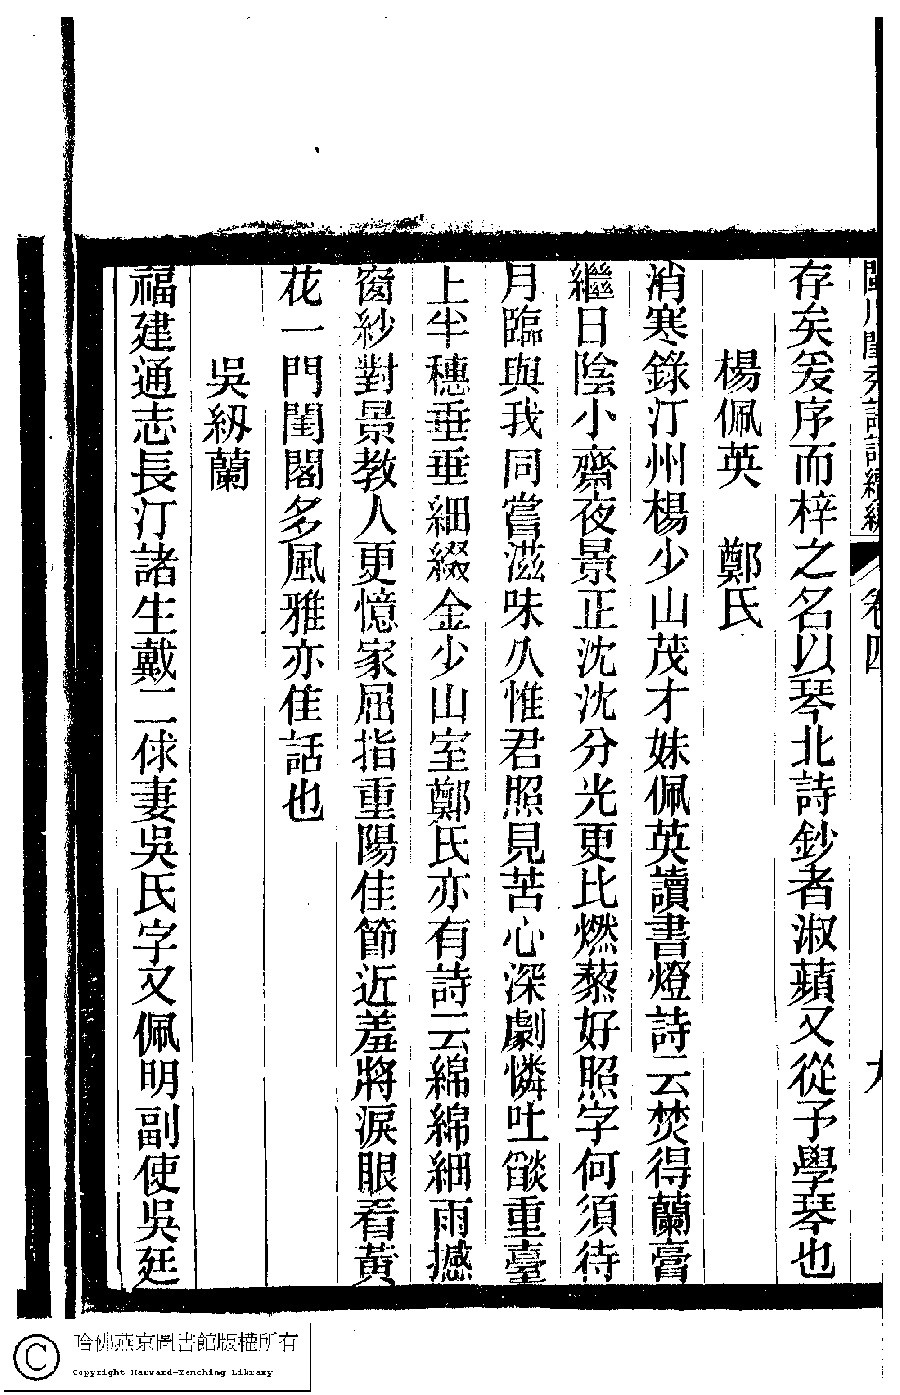 閨秀詩話續編 卷四 九
存矣爰序而梓之名以琴北詩鈔者淑蘋又從予學琴也
楊佩英 鄭氏
消寒錄汀州楊少山茂才妹佩英讀書燈詩云焚得蘭膏
繼日陰小齋夜景正沈沈分光更比燃藜好照字何須待
月臨與我同嘗滋味久惟君照見苦心深劇憐吐燄重臺
上半穗垂垂細綴金少山室鄭氏亦有詩云綿綿細雨撼
窗紗對景教人更憶家屈指重陽佳節近羞將淚眼看黃
花一門閨閣多風雅亦佳話也
吳紉蘭
福建通志長汀諸生戴二俅妻吳氏字又佩明副使吳廷
哈佛燕京圖書館版權所有
Copyright Harvard-Yenching Library